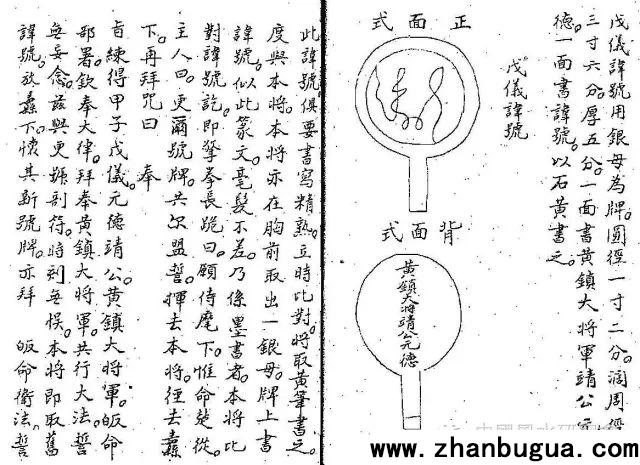 戊儀諱號用銀母為牌。圓徑一寸二分。濶周徑
三寸六分。厚五分。一面書黃鎮大將軍靖公元
德。一面書諱號。以石黃書之。
戊儀諱號
正面式
背面式
黃鎮大將靖公元德
此諱號俱要書寫精熟。立時比對。將取黃筆書之。
度與本將。本將亦在胸前取出一銀母牌上書
諱號。似此篆文毫髮不差。乃係墨書者。本將比
對諱號訖。即擎拳長跪曰。願侍麾下。惟命是從。
主人曰。更爾號牌。共尔盟誓。揮去本將。徑去纛
下。再拜咒曰 奉
旨練得甲子戊儀。元德靖公黃鎮大將軍。皈命
部署。欽奉大律。拜奉黃鎮大將軍。共行大法。誓
無妄念。茲與更號剖符。時刻無悮。本將即取舊
諱號。放纛下。懷其新號牌。亦拜 皈命衛法。誓
www.zhanbugua.com